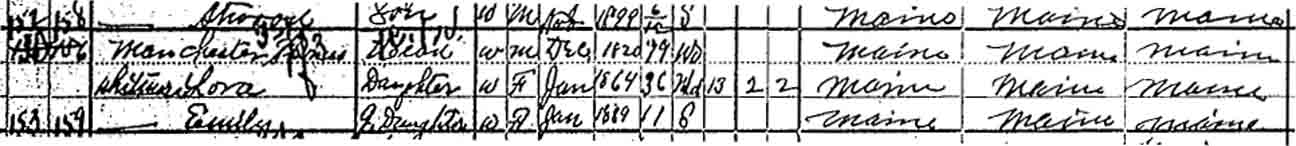 152 158 Son W M Oct 1899 6/12 S Maine Maine Maine
Manchester Head W M Dec 1820 79 Wd Maine Maine Maine
Whitman Lora Daughter W F Jan 1864 36 Wd 13 2 2 Maine Maine Maine
153 159 Emily G. Daughter W F Jan 1889 11 S Maine Maine Maine